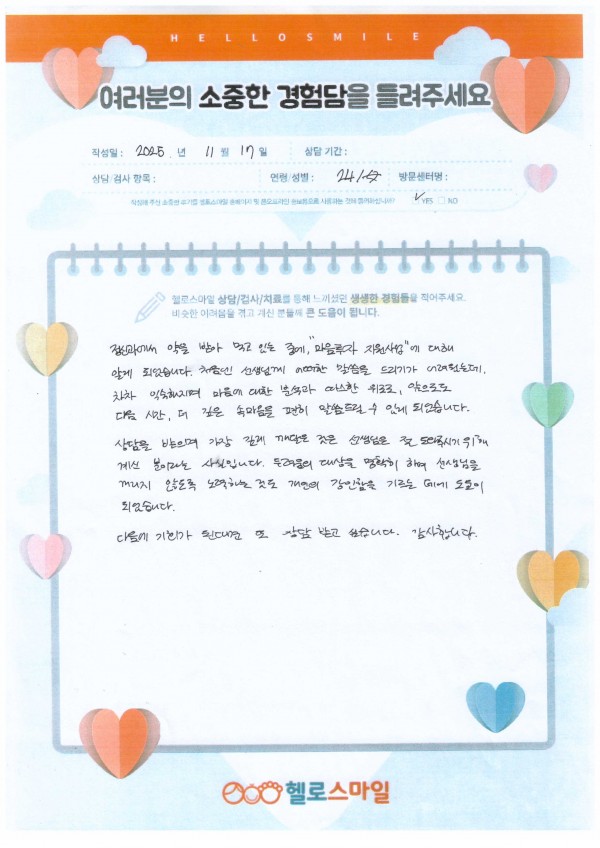 HELLOSMILE
여러분의 소중한 경험담을 들려주세요
작성일 : 2025 . 년 11 월 17 일 상담 기간 :
상담/검사 항목 : 연령/성별 : 24/女 방문센터명 :
작성해 주신 소중한 후기를 헬로스마일 홈페이지 및 온오프라인 홍보용으로 사용하는 것에 동의하십니까? ✓ YES □ NO
헬로스마일 상담/검사/치료를 통해 느끼셨던 생생한 경험들을 적어주세요.
비슷한 어려움을 겪고 계신 분들께 큰 도움이 됩니다.
정신과에서 약을 받아 먹고 있는 중에, "마음투자 지원사업"에 대해
알게 되었습니다. 처음엔 선생님께 어떠한 말씀을 드리기가 어려웠는데,
차차 익숙해지며 마음에 대한 분석과 따스한 위로로, 앞으로도
다음 시간, 더 깊은 속마음을 편히 말씀드릴 수 있게 되었습니다.
상담을 받으며 가장 깊게 깨달은 것은 선생님은 절 도와주시기 위해
계신 분이라는 사실입니다. 두려움의 대상을 명확히 하여 선생님을
꺼내지 않도록 노력하는 것도 개인의 강인함을 기르는 데에 도움이
되었습니다.
다음에 기회가 된다면 또 상담 받고 싶습니다. 감사합니다.
헬로스마일